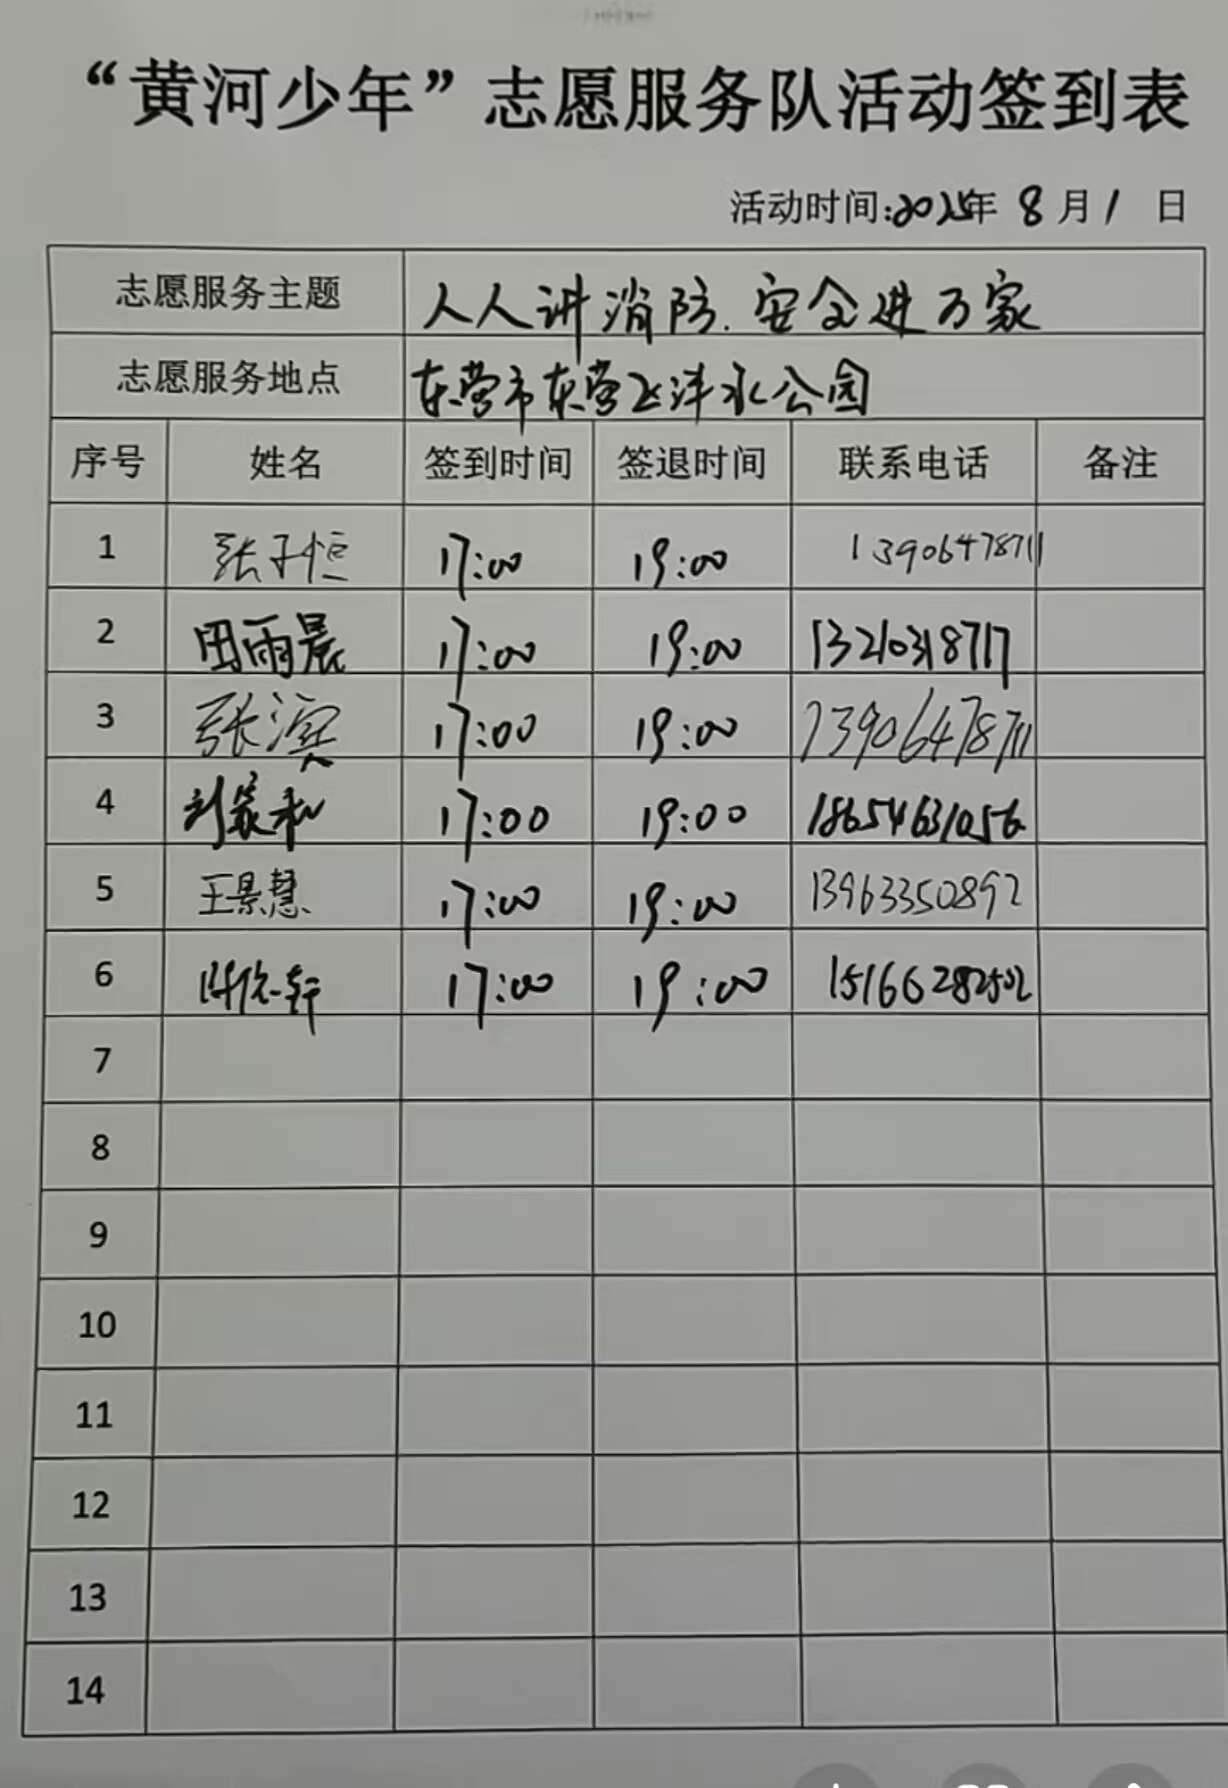 “黄河少年”志愿服务队活动签到表
活动时间:2025年 8 月 1 日
志愿服务主题 人人讲消防.安全进万家
志愿服务地点 东营市东营区沣水公园
序号 姓名 签到时间 签退时间 联系电话 备注
1 张子恒 17:00 19:00 13906478711
2 田雨晨 17:00 19:00 13210318717
3 张滨 17:00 19:00 13906478711
4 刘家和 17:00 19:00 18654631056
5 王景慧 17:00 19:00 13963350892
6 17:00 19:00
7
8
9
10
11
12
13
14